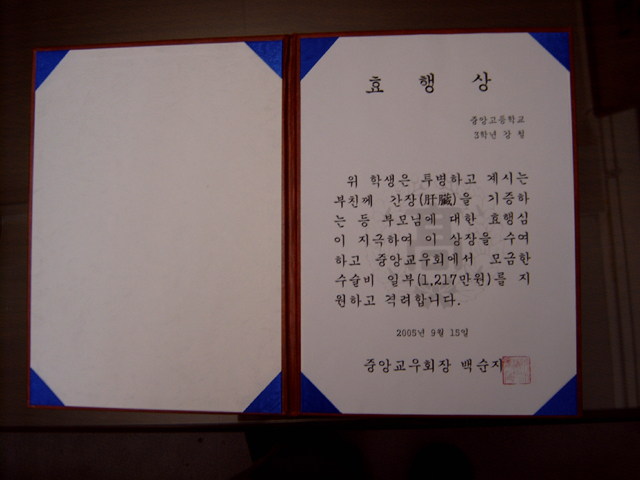 효 행 상
중앙고등학교
3학년 강 철
위 학생은 투병하고 계시는
부친께 간장(肝臟)을 기증하
는 등 부모님에 대한 효행심
이 지극하여 이 상장을 수여
하고 중앙교우회에서 모금한
수술비 일부(1,217만원)를 지
원하고 격려합니다.
2005년 9월 15일
중앙교우회장 백순지